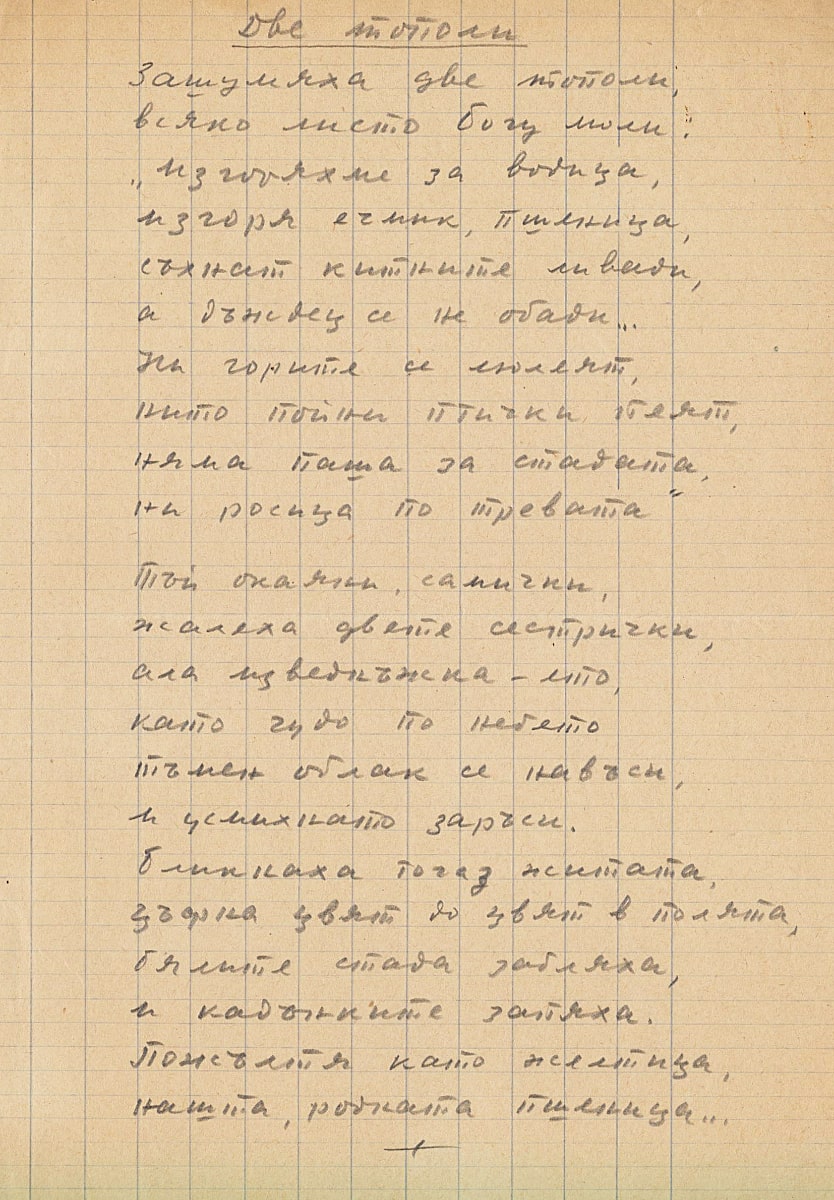 Две тополи
Зашумяха две тополи,
всяко листо богу моли:
„Изгоряхме за водица,
изгоря ечмик, пшеница,
съхнат китните ливади,
а дъждец се не обади...
Ни горите се люлеят,
нито пойни птички пеят,
няма паша за стадата,
ни росица по тревата"
Тъй окаяни, самички,
жалеха двете сестрички,
ала изведнъжка - ето,
като чудо по небето
тъмен облак се навъси,
и усмихнато заръси.
Блинкаха тогаз житата,
цъфна цвят до цвят в полята,
белите стада заблеяха,
и кадънките запяха.
Пожълтя като желтица,
нашта, родната пшеница...